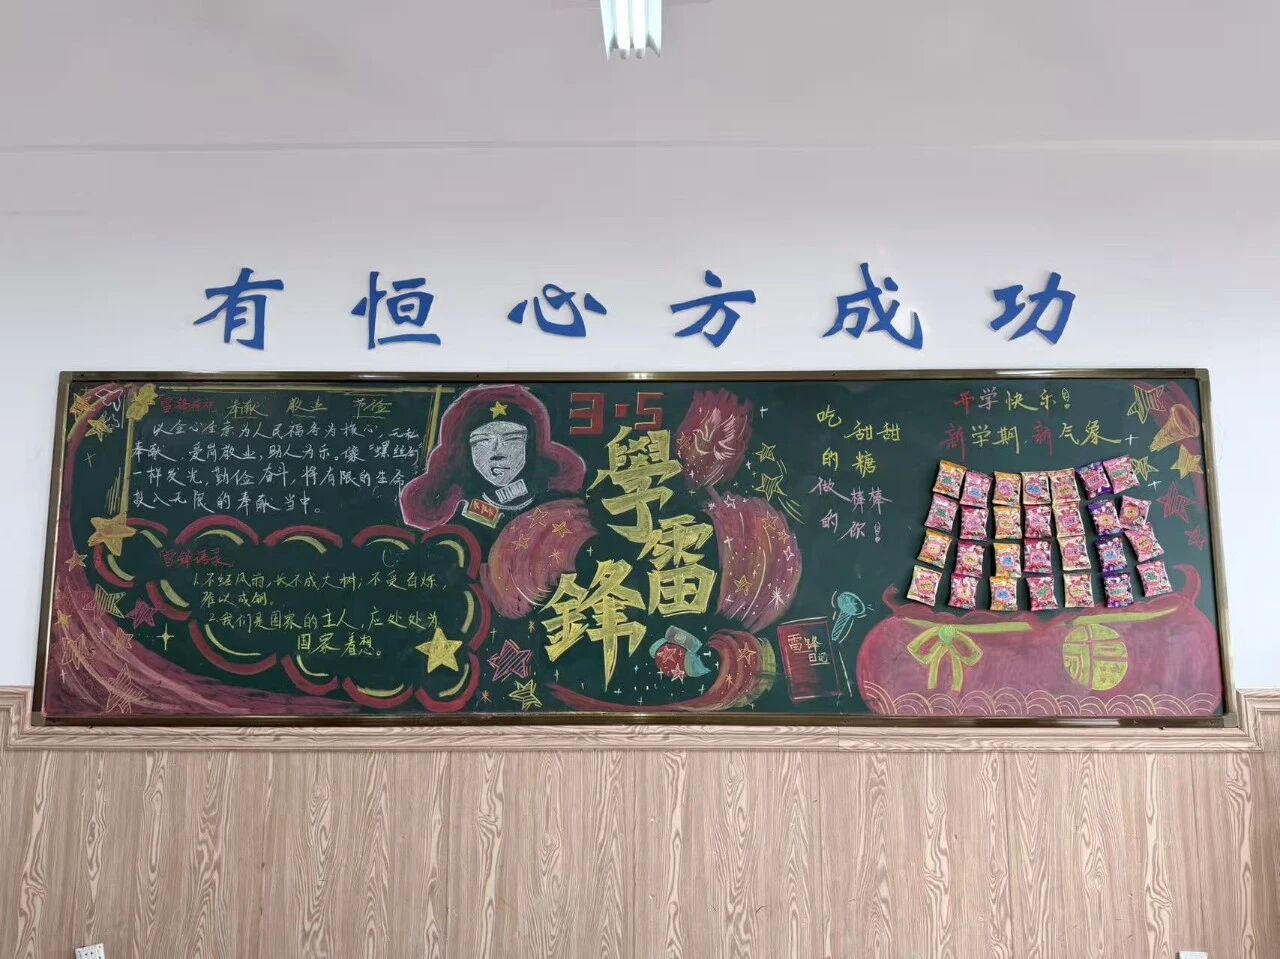 有恒心方成功
雷锋精神 奉献 敬业 节俭
以全心全意为人民服务为核心，无私
奉献、爱岗敬业，助人为乐，像"螺丝钉"
一样发光，勤俭奋斗，将有限的生命
投入无限的奉献当中。
雷锋语录
1.不经风雨，长不成大树；不受百炼，
难以成钢。
2.我们是国家的主人，应处处为
国家着想。
3·5
學雷鋒
雷锋
日记
吃甜甜的糖
做棒棒的你！
开学快乐！
新学期 新气象
福